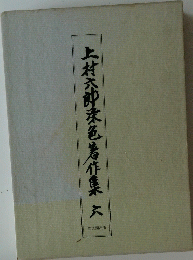 上村六郎染色著作集 六